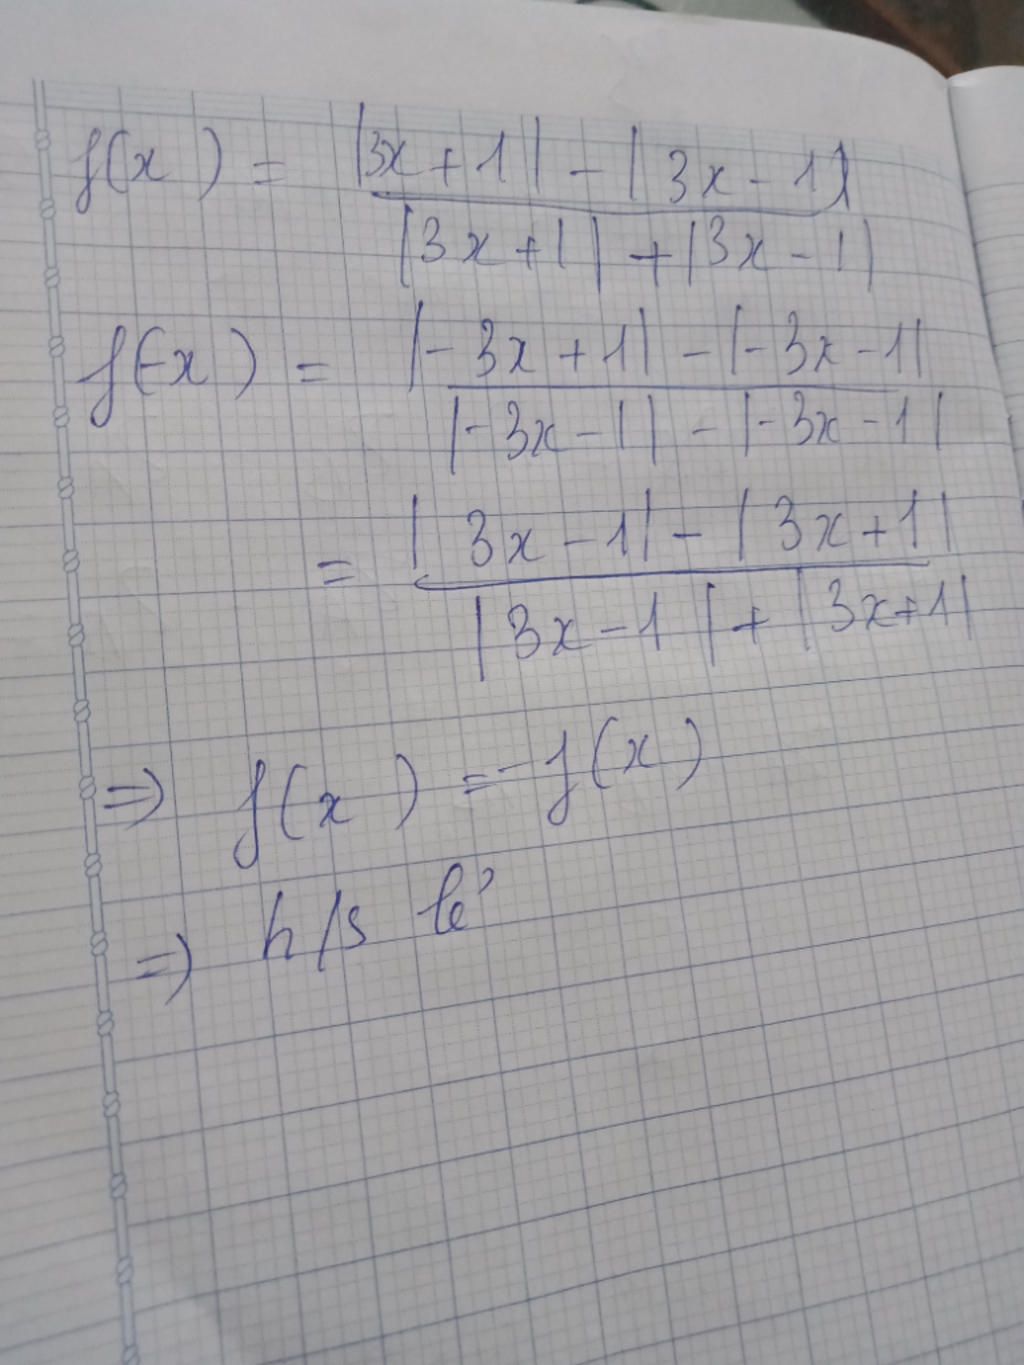 f(x) = |3x+1| - |3x-1|
|3x+1| + |3x-1|
f(-x) = |-3x+1| - |-3x-1|
|-3x-1| - |-3x-1|
= |3x-1| - |3x+1|
|3x-1| + |3x+1|
=> f(x) = -f(x)
=> h/s lẻ